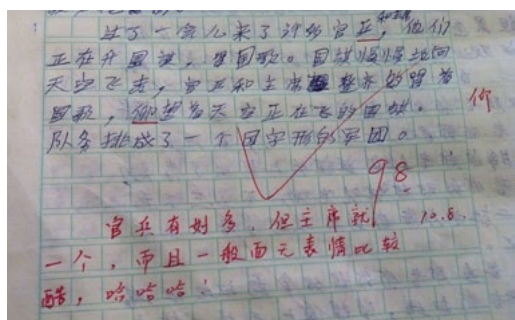 过了一会儿来了许多官兵和主席，他们
正在升国旗，唱国歌。国旗慢慢地向
天空飞去，官兵和主席整齐的唱着
国歌，仰望着天空正在飞的国旗。
队务排成了一个国字形的军团。
仰
98
官兵有好多，但主席就 10.8.
一个，而且一般面无表情比较
酷，哈哈哈！